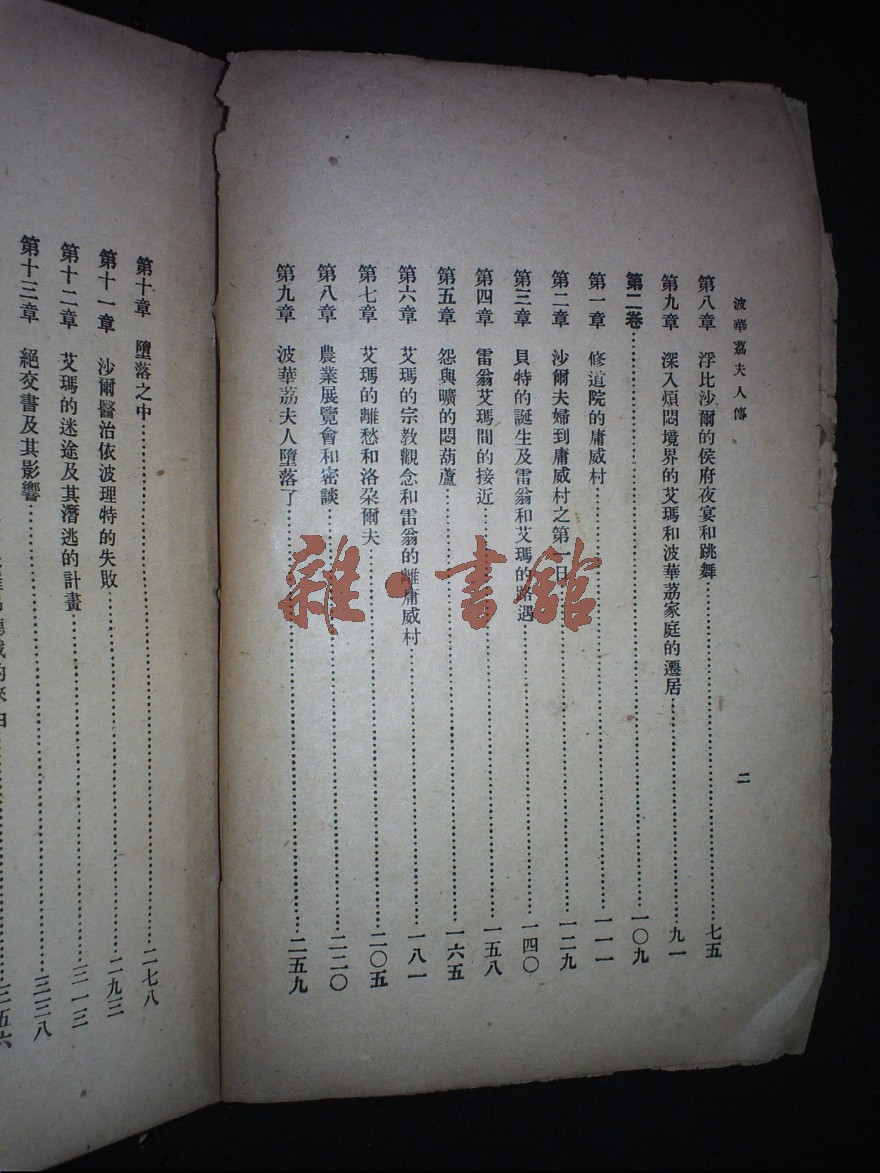 波華荔夫人傳
二
第八章　浮比沙爾的侯府夜宴和跳舞……七五
第九章　深入煩悶境界的艾瑪和波華荔家庭的遷居……九一
第二卷……一〇九
第一章　修道院的庸威村……一一一
第二章　沙爾夫婦到庸威村之第一日……一二九
第三章　貝特的誕生及雷翁和艾瑪的路遇……一四〇
第四章　雷翁艾瑪間的接近……一五八
第五章　怨與曠的悶葫蘆……一六五
第六章　艾瑪的宗教觀念和雷翁的離庸威村……一八一
第七章　艾瑪的離愁和洛朶爾夫……二〇五
第八章　農業展覽會和密談……二二〇
第九章　波華荔夫人墮落了……二五九
第十章　墮落之中……二七八
第十一章　沙爾醫治依波理特的失敗……二九三
第十二章　艾瑪的迷途及其潛逃的計畫……三一三
第十三章　絕交書及其影響……三三八
三五六
雜·書館